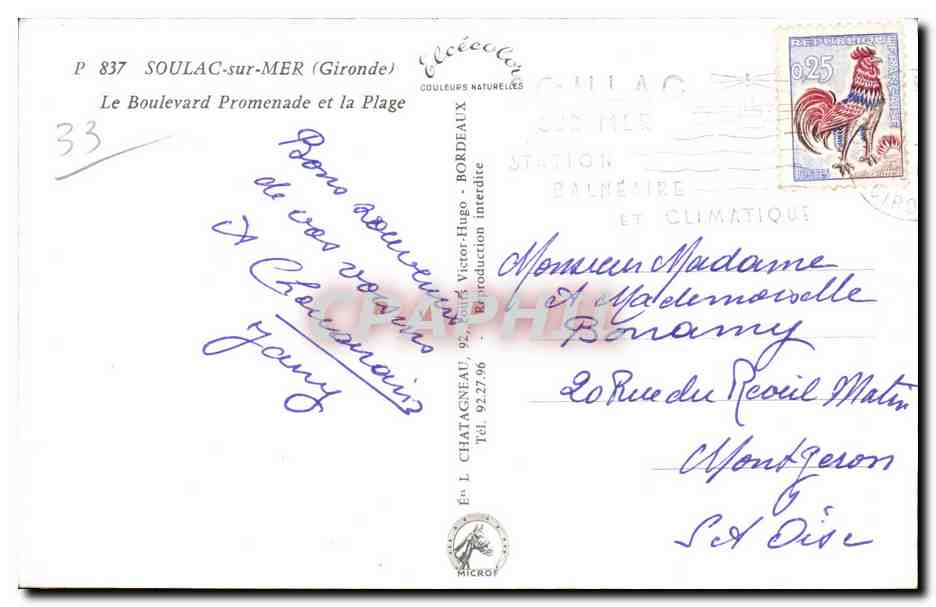 P 837 SOULAC-sur-MER (Gironde)
Le Boulevard Promenade et la Plage
33
Elcécolor
COULEURS NATURELLES
SOULAC
SUR MER
STATION
BALNÉAIRE
ET CLIMATIQUE
REPUBLIQUE
FRANCAISE
0,25
POSTES
Bons souvenirs
de vos voisins
A
Jany
CPAPHIL
Én L. CHATAGNEAU, 92, cours Victor-Hugo - BORDEAUX
Tél. 92.27.96 - Reproduction interdite
MICROF
Monsieur Madame
A Mademoiselle
Bonamy
20 Rue du Reveil Matin
Montgeron
S A Oise